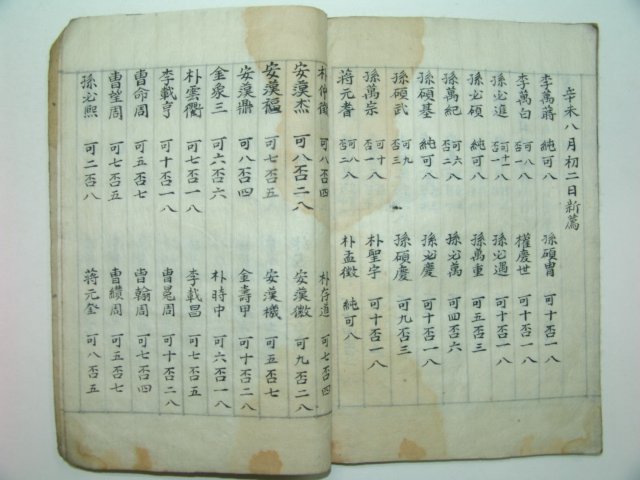 辛未八月初二日新薦
李萬蔣 純可八 孫碩胄 可十否一八
李萬白 可八八 否一 權慶世 可十否一八
孫必進 可十一八 否一 孫必遇 可十否一八
孫必碩 純可八 孫萬重 可五否三
孫萬紀 可六八 否二 孫必萬 可四否六
孫碩基 純可八 孫必慶 可十否一八
孫碩武 可九 否三 孫碩慶 可九否三
孫萬宗 可十八 否一 朴聖字 可十否一八
蔣元耆 可八八 否二 朴孟徵 純可八
朴仲徵 可八否四 朴存道 可七否四
安漢杰 可八否二八 安漢徵 可九否二八
安漢福 可七否五 安漢機 可七否五
安漢鼎 可八否四 金壽甲 可十否二八
金泉三 可六否六 朴時中 可六否一八
朴雲衢 可七否一八 李載昌 可七否五
李載亨 可十否一八 曺冕周 可十否二八
曺命周 可五否七 曺翰周 可七否四
曺望周 可七否五 曺纘周 可五否七
孫必熙 可二否八 蔣元奎 可八否五